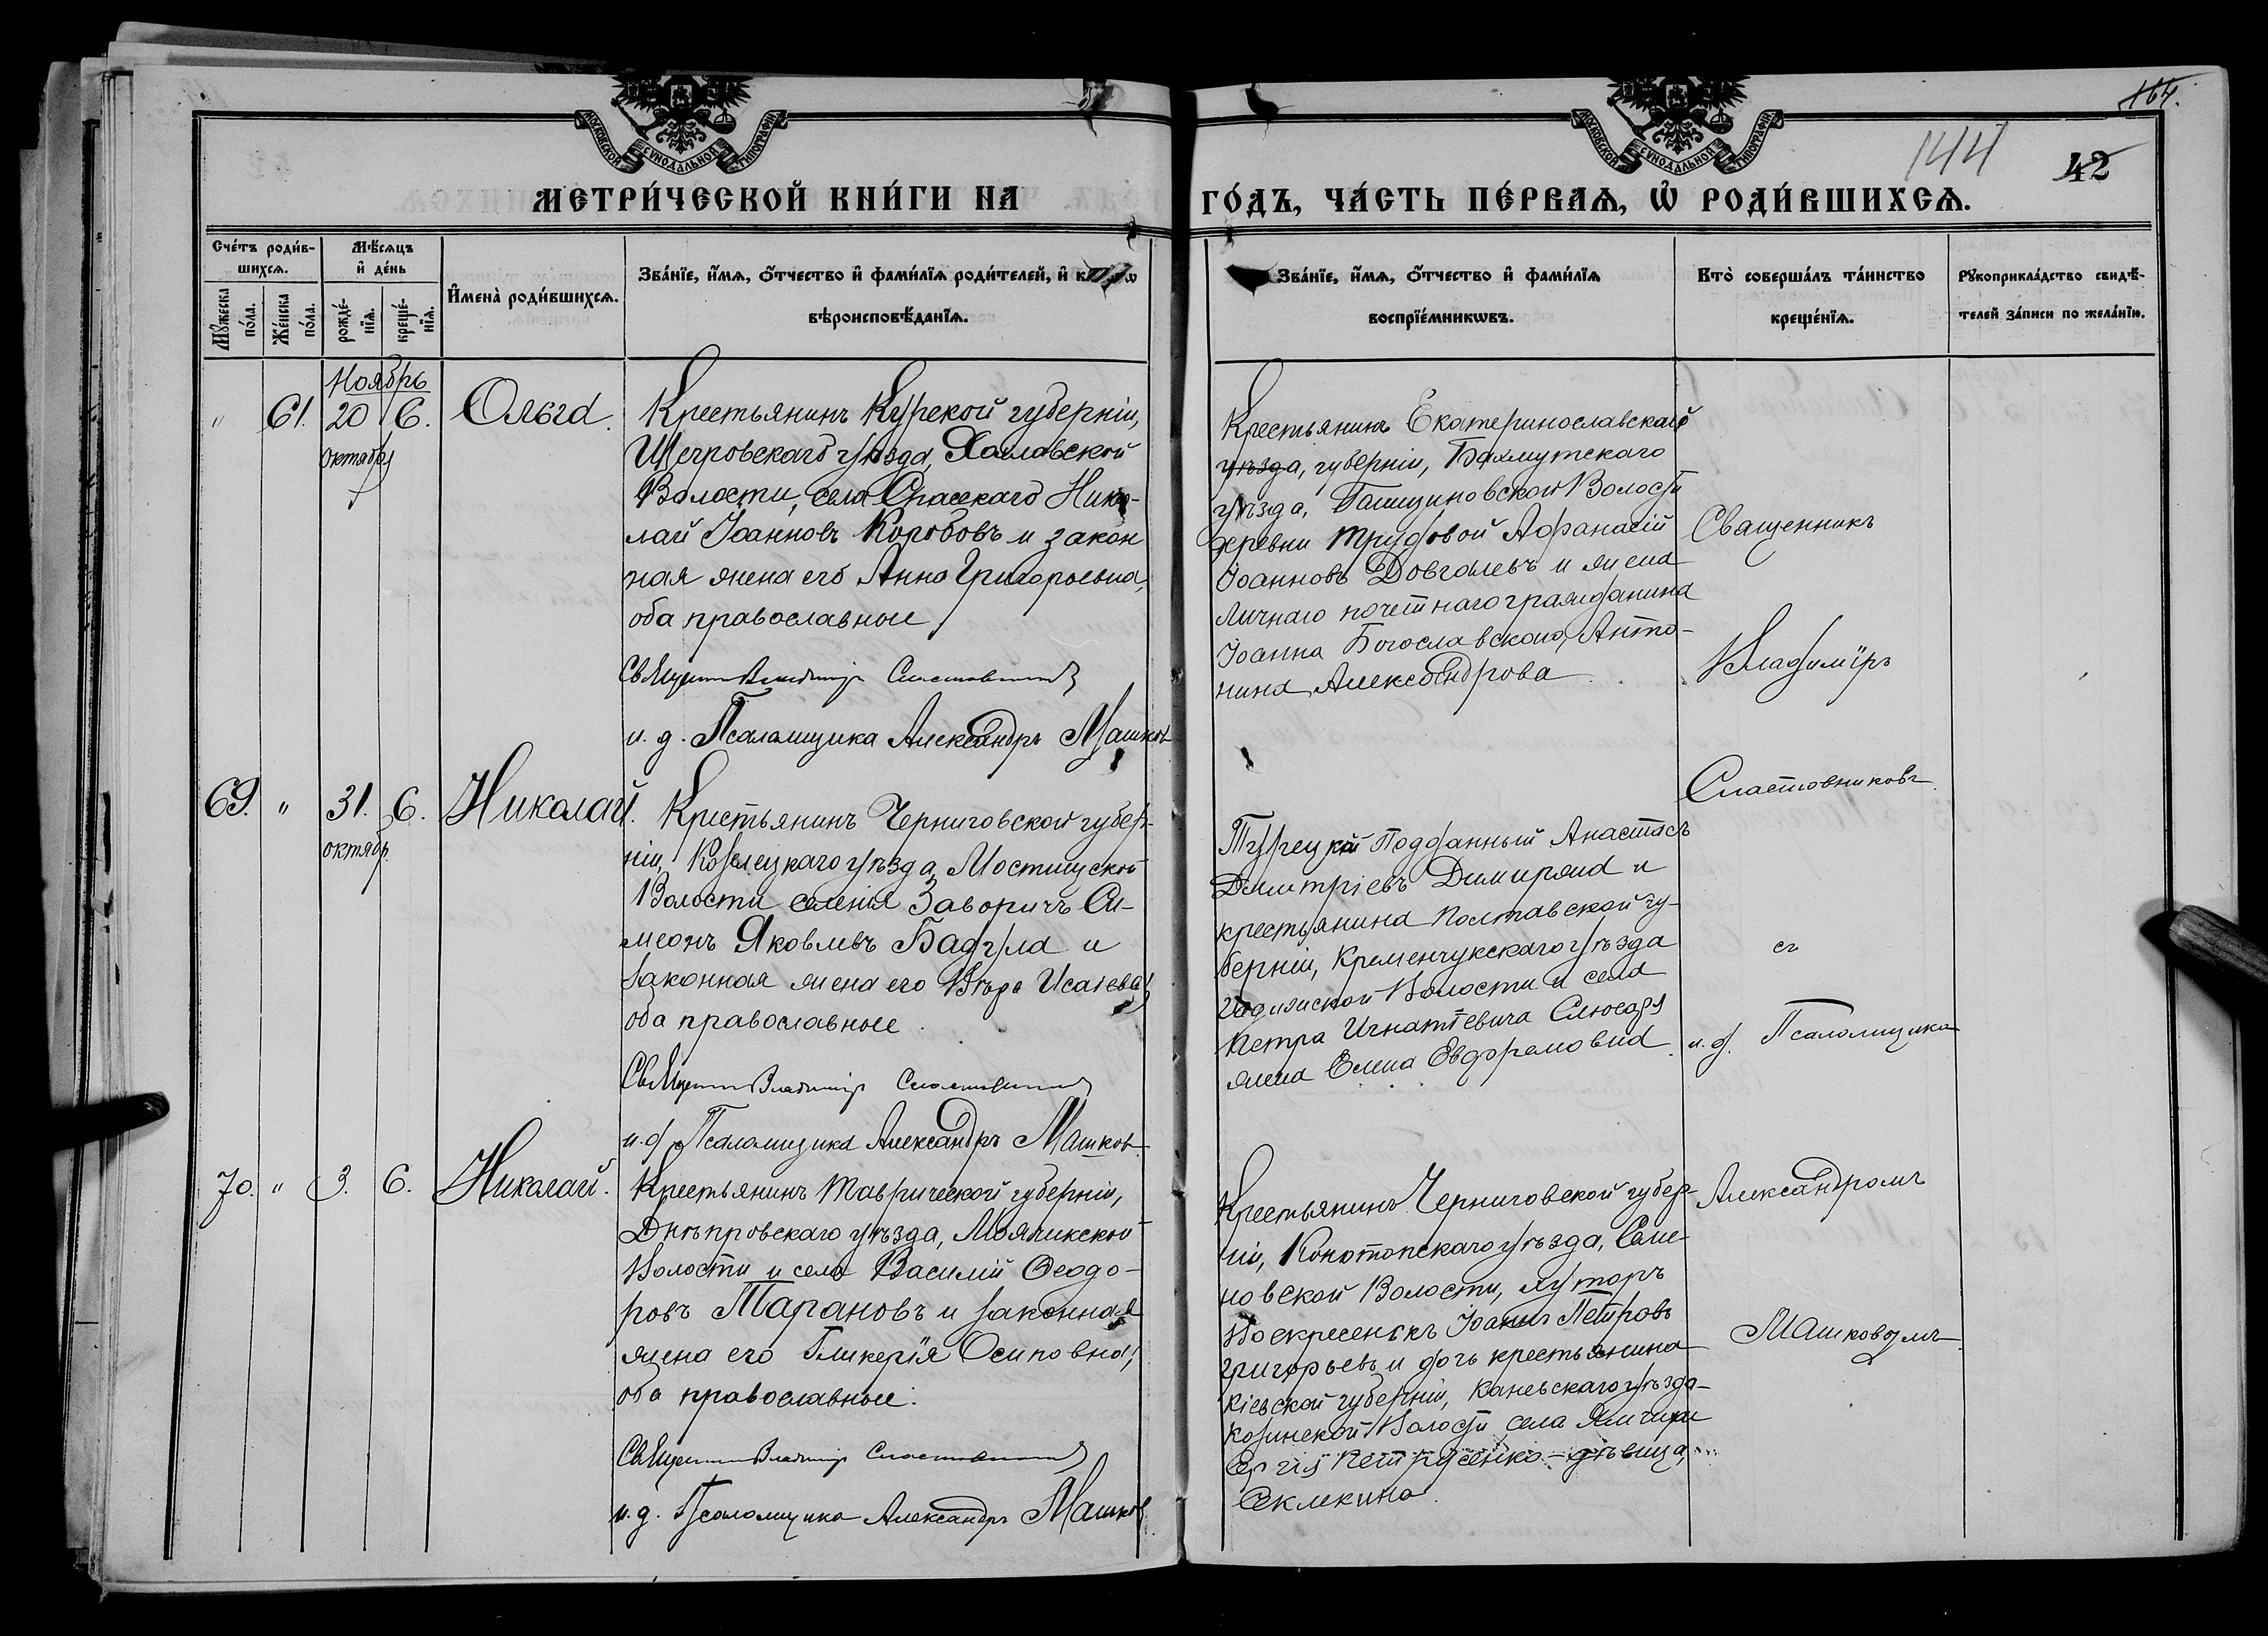 164.
144
42
МОСКОВСКОЙ СѴНОДАЛЬНОЙ ТИПОГРАФІИ
МОСКОВСКОЙ СѴНОДАЛЬНОЙ ТИПОГРАФІИ
МЕТРИ́ЧЕСКОЙ КНИ́ГИ НА
ГО́ДЪ, ЧА́СТЬ ПЕ́РВАѦ, Ѽ РОДИ́ВШИХСѦ.
Сче́тъ роди́в-
шихсѧ.
Мꙋ́жеска
по́ла.
Же́нска
по́ла.
Мѣ́сѧцъ
и҆ де́нь
рожде́-
нїѧ.
креще́-
нїѧ.
И҆мена̀ роди́вшихсѧ.
Зва́нїе, и҆́мѧ, ѻ҆́тчество и҆ фами́лїѧ роди́телей, и҆
вѣроисповѣ́данїѧ.
Зва́нїе, и҆́мѧ, ѻ҆́тчество и҆ фами́лїѧ
воспрїе́мникѡвъ.
Кто̀ соверша́лъ та́инство
креще́нїѧ.
Рꙋкоприкла́дство свидѣ́-
телей за́писи по жела́нїю.
Ноябрь
" 61. 20 6. Ольга.
октября
Крестьянинъ Курской губерніи,
Щегровскаго уѣзда,
Волости, села Спасскаго Нико-
лай Іоанновъ Коробовъ и закон
ная жена его Анна Григорьевна,
оба православные
Священникъ Владиміръ Сластовниковъ
и. д. Псаломщика Александръ Машков
Крестьянинъ Екатеринославской
уѣзда, губерніи, Бахмутскаго
уѣзда, Волости
деревни Трудовой Афанасій
Іоанновъ Довгалевъ и жена
личнаго почетнаго гражданина
Іоанна Богославскаго, Анто-
нина Александрова
Священникъ
Владиміръ
Сластовниковъ
69. " 31. 6. Николай.
октябр.
Крестьянинъ Черниговской губер-
ніи, Козелецкаго уѣзда, Мостищской
Волости селенія Заворичъ Си-
меонъ Яковлевъ Бадула и
законная жена его Вѣра Исаіева
оба православные.
Священникъ Владиміръ Сластовниковъ
и. д. Псаломщика Александръ Машков
Турецкій Подданный Анастасъ
Димитріевъ и
крестьянина Полтавской гу-
берніи, Кременчукскаго уѣзда
Волости и села
Петра Игнатіевича Слюсаря
жена Елена
съ
и. д. Псаломщика
70. " 3. 6. Николай.
Крестьянинъ Таврической губерніи,
Днѣпровскаго уѣзда,
Волости и села Василій Ѳеодо-
ровъ Тарановъ и законная
жена его Гликерія Осиповна,
оба православные.
Священникъ Владиміръ Сластовниковъ
и. д. Псаломщика Александръ Машков
Крестьянинъ Черниговской губер-
ніи, Конотопскаго уѣзда, Семе-
новской Волости, хуторъ
Іоаннъ Петровъ
Григорьевъ и дочь крестьянина
Кіевской губерніи, Каневскаго уѣзда
Козинской Волости села
Сергія Петрусенко - дѣвица,
Александромъ
Машковымъ